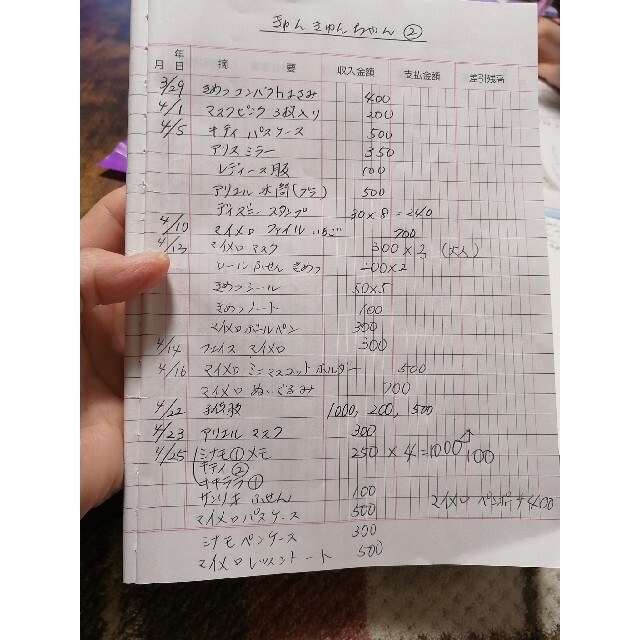 きゅんきゅんちゃん ②
年
月 日 摘 要 収入金額 支払金額 差引残高
3/29 きめつコンパクトはさみ 400
4/1 マスクピンク 3枚入り 200
4/5 キティ パスケース 500
アリスミラー 350
レディース服 100
アリエル 水筒(プラ) 500
ディズニー スタンプ 30×8=240
4/10 マイメロ ファイル いちご 700
4/13 マイメロ マスク 300×2 (大人)
シール ふせん きめつ 200×2
きめつシール 50×5
きめつノート 100
マイメロボールペン 300
4/14 フェイス マイメロ 300
4/16 マイメロ ミニマスコットホルダー 500
マイメロ ぬいぐるみ 700
4/22 子供服 1000, 200, 500
4/23 アリエル マスク 300
4/25 シナモ①メモ 250×4=1000 100
キティ②
キキララ①
サンリオ ふせん 100
マイメロ ペンポーチ400
マイメロパスケース 500
シナモペンケース 300
マイメロレッスントート 500